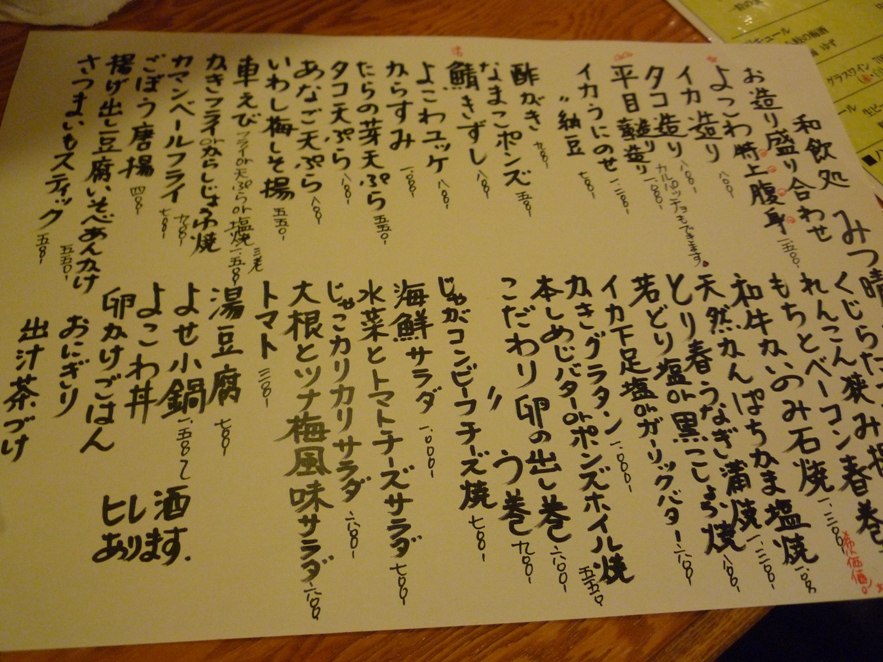 和飲処 みつ晴
お造り盛り合わせ
よこわ特上腹身 一.五〇〇-
よこわ造り
イカ造り 八〇〇-
タコ造り 八〇〇-
カルパッチョもできます。
平目薄造り 一.二〇〇-
イカうにのせ 七〇〇-
〃納豆
酢がき 九〇〇-
なまこポンズ 五〇〇-
鯖きずし 八〇〇-
よこわユッケ 八〇〇-
からすみ 一.〇〇〇-
たらの芽天ぷら 五五〇-
タコ天ぷら 八〇〇-
あなご天ぷら 八〇〇-
いわし梅しそ揚 五五〇-
車えび フライor天ぷらor塩焼 三尾 一.五〇〇-
かきフライorからしじょうゆ焼 九〇〇-
カマンベールフライ 七〇〇-
ごぼう唐揚 四〇〇-
揚げ出し豆腐いそべあんかけ 五五〇-
さつまいもスティック 五〇〇-
れんこん狭み揚
もちとベーコン春巻
和牛かいのみ石焼 一.三〇〇-
天然かんぱちかま塩焼
うなぎ蒲焼 一.二〇〇-
とり春 塩or黒こしょう焼 八〇〇-
若どり塩orガーリックバター 六〇〇-
イカ下足
かきグラタン 一.〇〇〇-
本しめじバターorポンズホイル焼 五五〇
こだわり卵の出し巻 六〇〇-
〃 う巻 九〇〇-
じゃがコンビーフチーズ焼 七〇〇-
海鮮サラダ 一.〇〇〇-
水菜とトマトチーズサラダ 七〇〇-
じゃこカリカリサラダ 六〇〇-
大根とツナ梅風味サラダ 六〇〇-
トマト 三〇〇-
湯豆腐 七〇〇-
よせ小鍋 一.五〇〇〜
よこわ丼
卵かけごはん
おにぎり
出汁茶づけ
ヒレ酒
あります.
グラスワイン